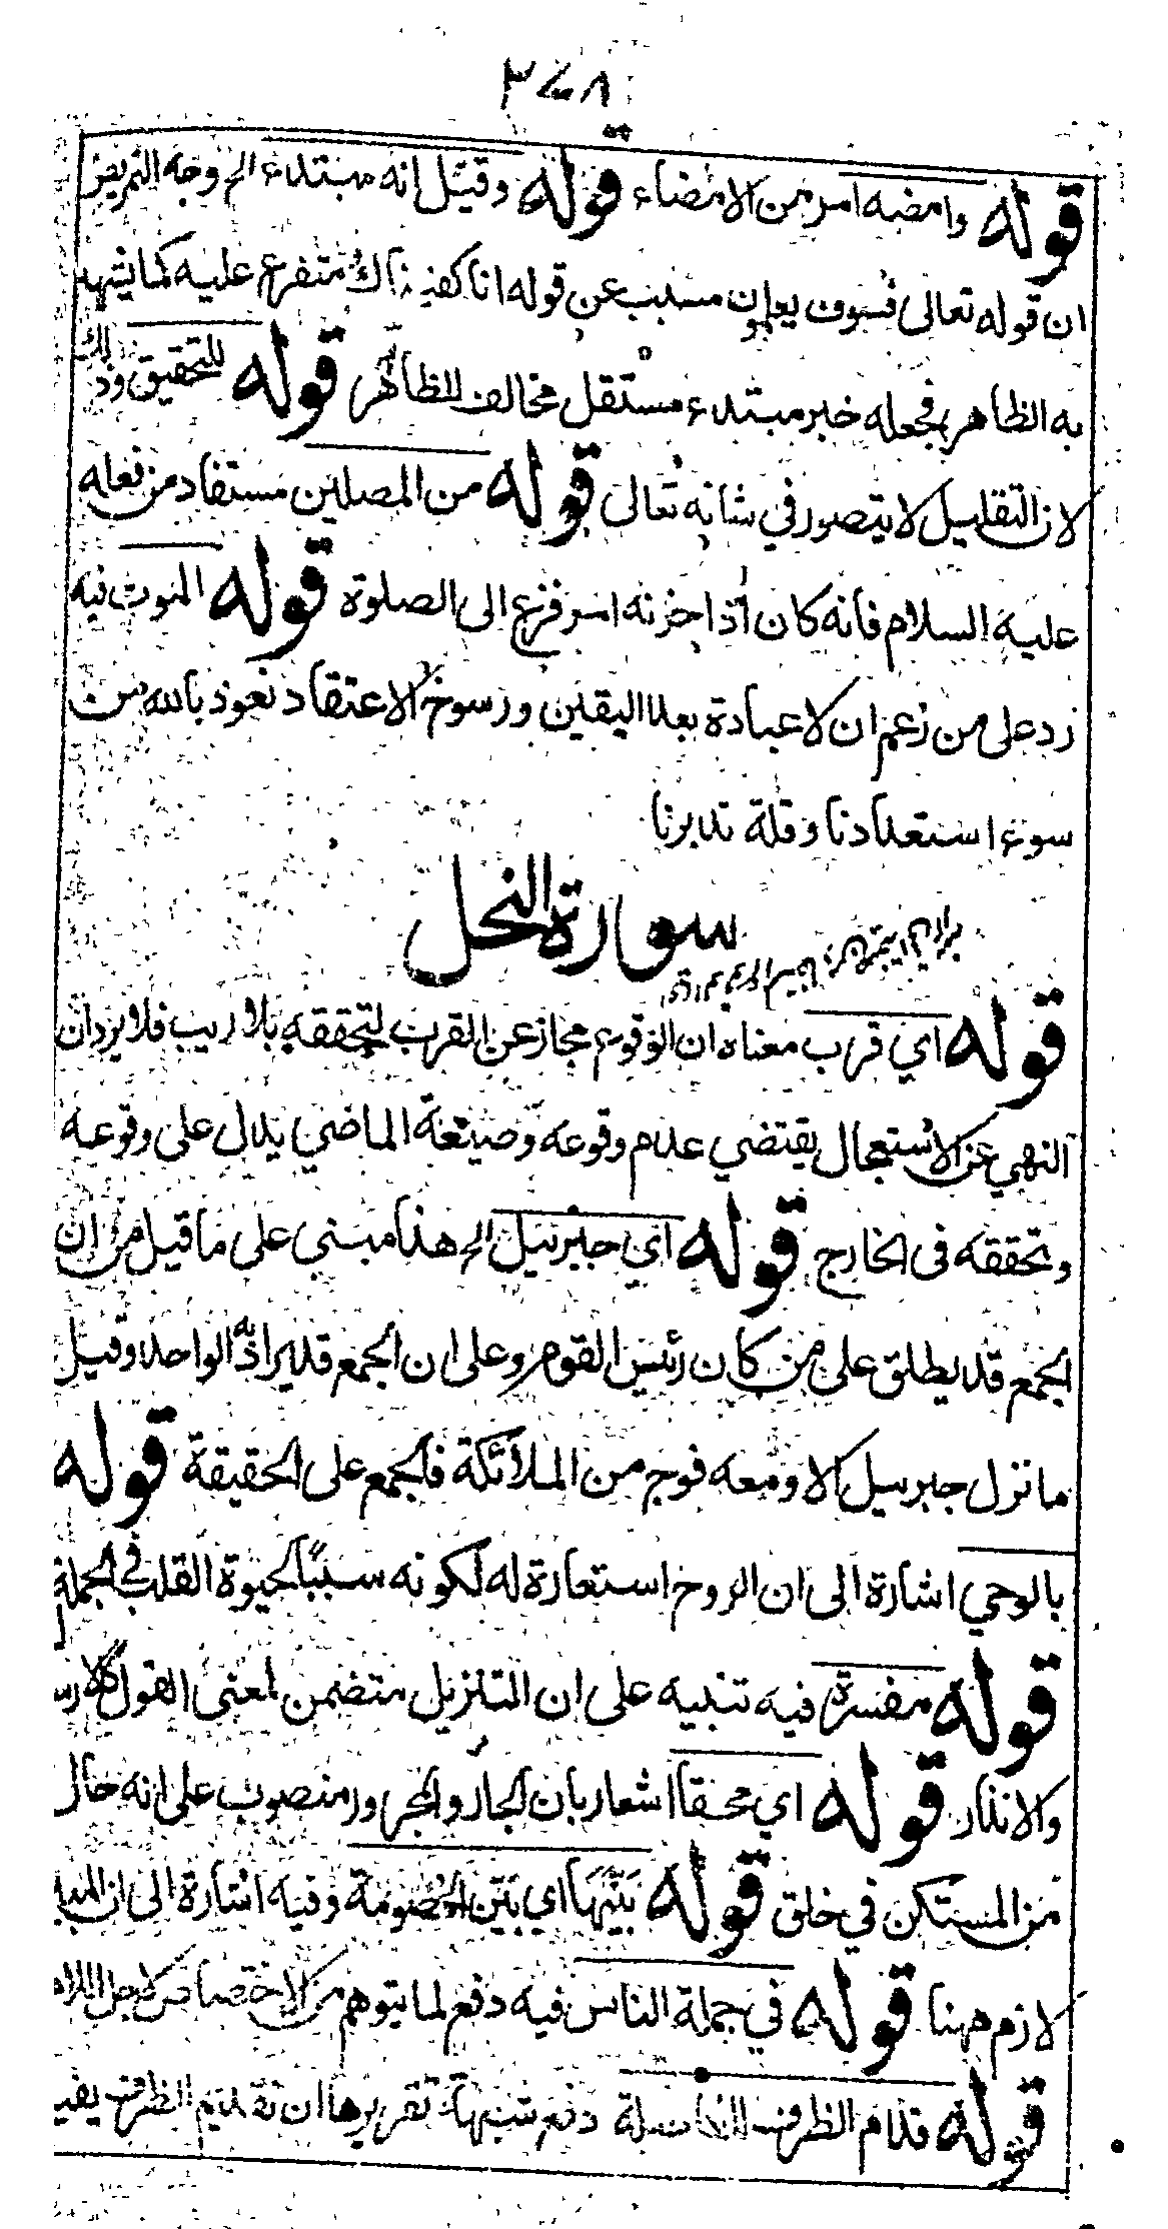 ٣٤٨
قوله وامضه امر من الامضاء قوله وقيل انه مبتدء الخ وجه التمريض
ان قوله تعالى فسوف يعلمون مسبب عن قوله انا كفيناك متفرع عليه كما يشهد
به الظاهر فجعله خبر مبتدء مستقل مخالف للظاهر قوله للتحقيق وذلك
لان التقليل لا يتصور في شانه تعالى قوله من المصلين مستفاد من فعله
عليه السلام فانه كان اذا حزنه امر فزع الى الصلوة قوله الموت فيه
رد على من زعم ان لا عبادة بعد اليقين ورسوخ الاعتقاد نعوذ بالله من
سوء استعدادنا وقلة تدبرنا
سورة النحل
قوله اي قرب معناه ان الوقوع مجاز عن القرب لتحققه بلا ريب فلا يرد ان
النهي عن الاستعجال يقتضي عدم وقوعه وصيغة الماضي يدل على وقوعه
وتحققه في الخارج قوله اي جبرئيل الخ هذا مبني على ما قيل من ان
الجمع قد يطلق على من كان رئيس القوم وعلى ان الجمع قد يراد به الواحد وقيل
ما نزل جبرئيل الا ومعه فوج من الملائكة فالجمع على الحقيقة قوله
بالوحي اشارة الى ان الروح استعارة له لكونه سببا لحيوة القلب في الجملة
قوله مفسرة فيه تنبيه على ان التنزيل متضمن لمعنى القول كالارس
والانذار قوله اي محقا اشعار بان الجار والمجرور منصوب على انه حال
من المستكن في خلق قوله بينها اي بين الخصومة وفيه اشارة الى ان المبين
لازم ههنا قوله في جملة الناس فيه دفع لما يتوهم من الاختصاص لاجل اللام
قوله قدم الظرف للفاصلة دفع شبهة تقريرها ان تقديم الظرف يفيد